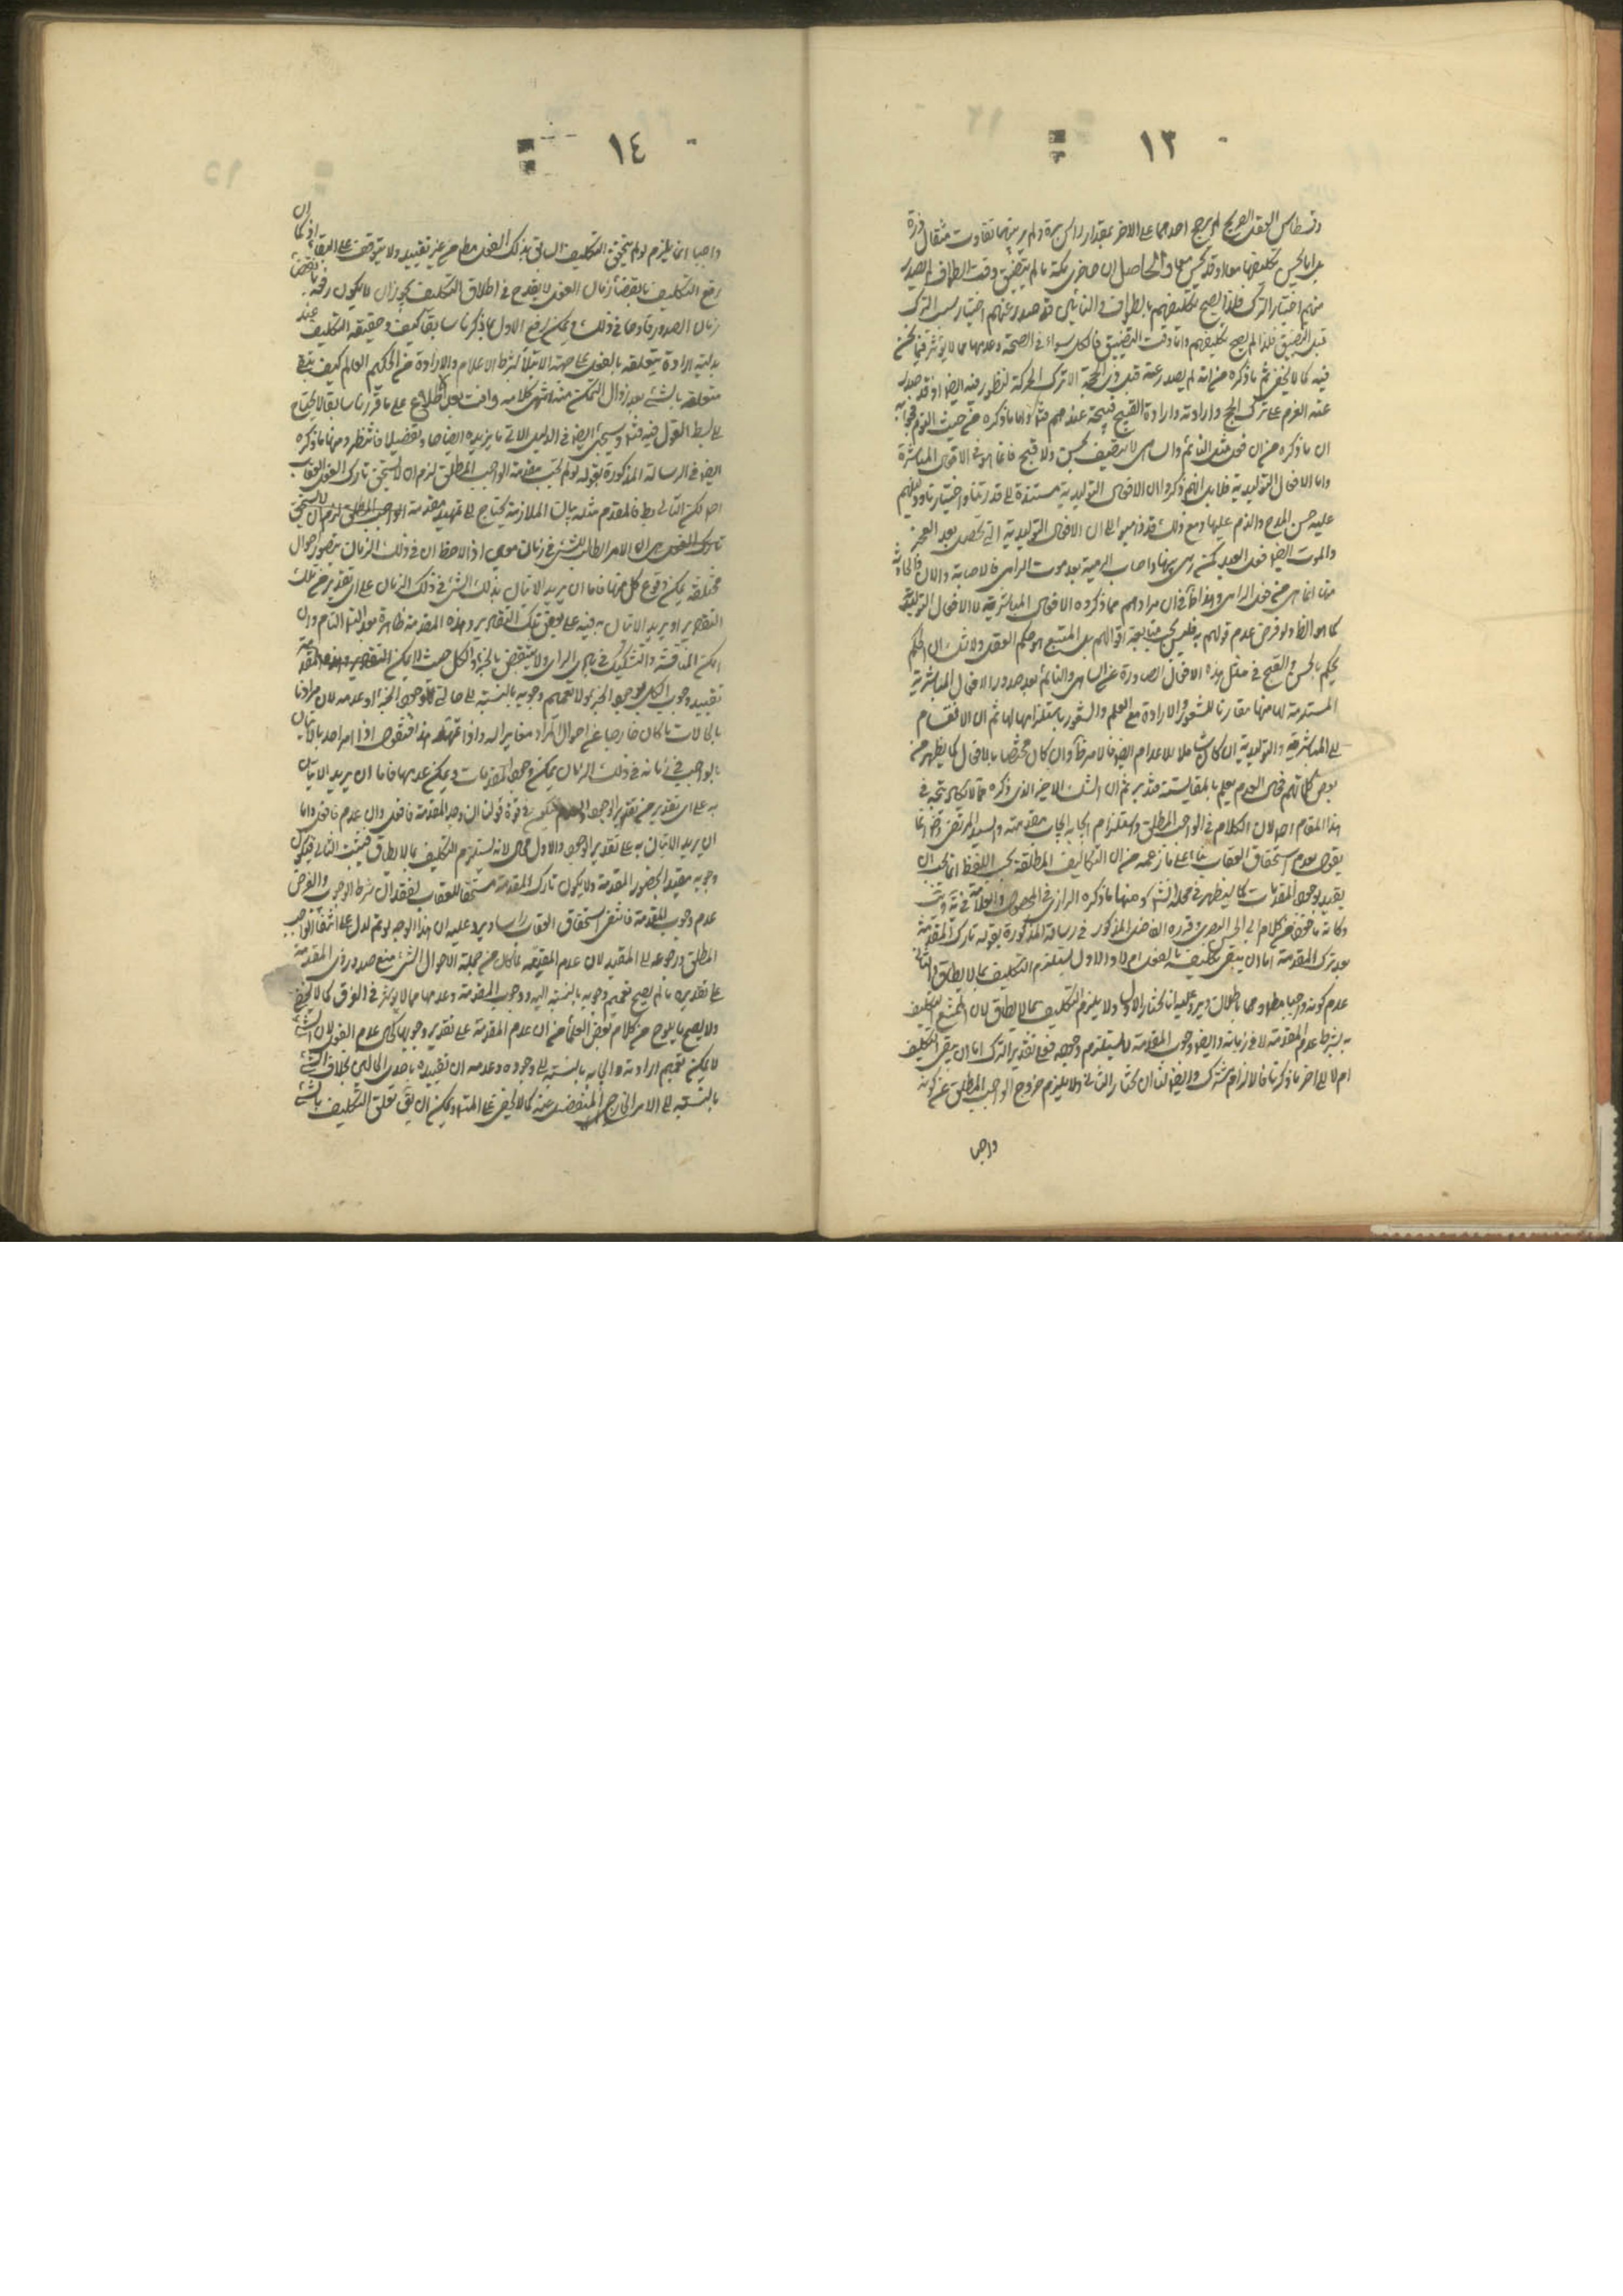 ١٣
وقسطاس العقل الصريح لم يرجح احدهما على الاخر بمقدار
بل اما يحسن تكليفهما معا او قد يحسن معا والحاصل ان حاضري مكة ما لم يتضيق وقت الطواف لم يصدر
منهم اختيار الترك فلذا يصح تكليفهم بالطواف والنائين قد صدر عنهم اختيار سبب الترك
قبل التضيق فلذا لم يصح تكليفهم واما وقت التضيق فالكل سواء في الصحة وعدمها مما لا يؤثر فيما نحن
فيه كما لا يخفى ثم ما ذكره من انه لم يصدر عنه قبل ذي الحجة الا ترك الحركة منظور فيه ايضا اذ قد صدر
عنه العزم على ترك الحج وارادته وارادة القبيح قبيحة عندهم واما ما ذكره من حيث النوم
ان ما ذكره من ان فعل مثل النائم والساهي لا يتصف بحسن ولا قبح فانما هو في الافعال المباشرة
واما الافعال التوليدية فلا بد انهم ذكروا ان الافعال التوليدية مستندة الى قدرتنا واختيارنا
عليه حسن المدح والذم عليها ومع ذلك قد ذهبوا الى ان الافعال التوليدية التي تحصل بعد العجز
والموت ايضا فعل العبد كمن رمى سهما واصاب الرمية بعد موت الرامي فالاصابة والالم
من فعل الرامي وهذا في ان مرادهم مما ذكروه الافعال المباشرية لا الافعال التوليدية
كما هو الظ ولو فرض عدم قولهم به فليس يجب متابعة اقوالهم بل المتبع هو حكم العقل ولا شك ان
يحكم بالحسن والقبح في مثل هذه الافعال الصادرة عن الساهي والنائم بعد صدور الافعال المباشرية
المستلزمة لها منها مقارنا للشعور والارادة مع العلم والشعور باستلزامها لها ثم ان الانقسام
الى المباشرية والتوليدية ان كان شاملا للاعدام ايضا فالامر ظ وان كان مختصا بالافعال كما يظهر من
بعض كلماتهم فحال العدم يعلم بالمقايسة فتدبر ثم ان الشك الاخير الذي ذكره مما لا يكاد يتجه في
هذا المقام اصلا لان الكلام في الواجب المطلق واستلزام ايجابه ايجاب مقدمته والسيد المرتضى رض انما
يقول بعدم استحقاق العقاب بناء على ما زعمه من ان التكاليف المطلقة بحسب اللفظ
يقيد بوجود المقدمات كما سيظهر في محله ومنها ما ذكره الرازي في المحصول والعلامة في
وكانه مأخوذ من كلام ابي الحسين البصري وقرره الفاضل المذكور في رسالته المذكورة بقوله تارك المقدمة
بعد ترك المقدمة اما ان يبقى تكليفه بالفعل ام لا والاول يستلزم التكليف بما لا يطاق
عدم كونه واجبا مطلقا وهما باطلان ويرد عليه انا نختار الاول ولا يلزم التكليف بما لا يطاق لان الممتنع التكليف
به بشرط عدم المقدمة لا في زمانه وايضا وجوب المقدمة لا يستلزم وجوده فعلى تقدير الترك اما ان يبقى التكليف
ام لا الى اخر ما ذكرنا فالالزام مشترك وايضا لنا ان نختار الثاني ولا يلزم خروج الواجب المطلق عن كونه
واجبا
١٤
واجبا انما يلزم لو لم يتحقق التكليف السابق بذلك الفعل مطلقا من غير تقييد ولا يتوقف على البقاء
رفع التكليف بانقضاء زمان الفعل لا يقدح في اطلاق التكليف
زمان الصدور قادحا في ذلك ويمكن رفع الاول بما ذكرنا سابقا كيف وحقيقة التكليف عند
بدلية ارادة متعلقة بالفعل على جهة الابتلاء بشرط الاعلام والارادة من الحكيم العالم كيف يبقى
متعلقة بالشيء بعد زوال التمكن منه انتهى كلامه وانت بعد الاطلاع على ما قررنا سابقا لا تحتاج
الى بسط القول فيه وسيجيء ايضا في الدليل الاتي ما يزيده ايضاحا وتفصيلا فانتظر ومنها ما ذكره
ايضا في الرسالة المذكورة بقوله لو لم تجب مقدمة الواجب المطلق لزم ان لا يستحق تارك الفعل العقاب
اصلا لكن التالي بط فالمقدم مثله بيان الملازمة يحتاج الى تمهيد مقدمة
الامر الطالب للشيء في زمان معين اذا لاحظ ان في ذلك الزمان يتصور احوال
مختلفة يمكن وقوع كل منها فاما ان يريد الاتيان بذلك الشيء في ذلك الزمان على اي تقدير من تلك
التقادير او يريد الاتيان به فيه على بعض تلك التقادير وهذه المقدمة ظاهرة بعد التام وان
امكن المناقشة والتشكيك في بادي الراي ولا ينتقض بالجزء والكل حيث لا يمكن
تقييد وجوب الكل بوجود الجزء ولا تعميم وجوبه بالنسبة الى حالتي وجود الجزء او عدمه لان مرادنا
بالحالات ما كان خارجا عن احوال المراد مغايرا له واذا تمهد هذا فنقول اذا امر احد بالاتيان
بالواجب في زمانه في ذلك الزمان يمكن وجود المقدمات ويمكن عدمها فاما ان يريد الاتيان
به على اي تقدير من تقديري الوجود والعدم فيكون في قوة قولنا ان وجد المقدمة فافعل وان عدم فافعل واما
ان يريد الاتيان به على تقدير الوجود والاول محال لانه يستلزم التكليف بما لا يطاق فيثبت الثاني فيكون
وجوبه مقيدا بحضور المقدمة ولا يكون تارك المقدمة مستحقا للعقاب لفقدان شرط الوجوب والفرض
عدم وجوب المقدمة فانتفى استحقاق العقاب راسا ويرد عليه ان هذا الوجه لو تم لدل على انتفاء الواجب
المطلق ورجوعه الى المقيد لان عدم المقدمة لما كان من جملة الاحوال التي منع صدور ذي المقدمة
على تقديره ما لم يصح تعميم وجوبه بالنسبة اليه ووجوب المقدمة وعدمها مما لا يؤثر في الفرق كما لا يخفى
ولا يصح ما يلوح من كلام بعض العلماء من ان عدم المقدمة على تقدير وجوبها كحال عدم الفعل لان الشيء
لا يمكن تعميم ارادته وايجابه بالنسبة الى وجوده وعدمه ان تقييده باحدى الحالتين بخلاف الشيء
بالنسبة الى الامر الخارج المنفصل عنه كما لا يخفى على المتدبر ويمكن ان يق تعلق التكليف بالشيء